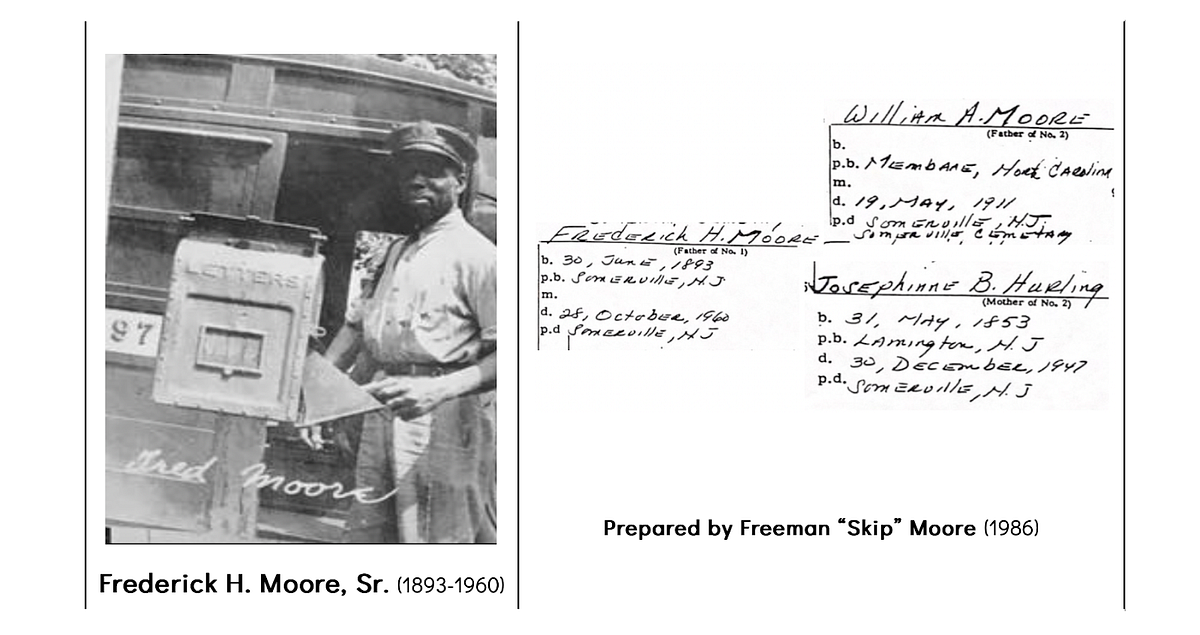 LETTERS
97
Fred Moore
Frederick H. Moore, Sr. (1893-1960)
FREDERICK H. MOORE
(Father of No. 1)
b. 30, JUNE, 1893
p.b. SOMERVILLE, N J
m.
d. 28, OCTOBER, 1960
p.d SOMERVILLE, N J
WilliAM A. MOORE
(Father of No. 2)
b.
p.b. MEMBANE, North CAROLINA
m.
d. 19, MAY, 1911
p.d SOMERVILLE, N.J.
SOMERVILLE CEMETARY
JOSEPHINNE B. HURLING
(Mother of No. 2)
b. 31, MAY, 1853
p.b. LAMINGTON, N. J
d. 30, DECEMBER, 1947
p.d. SOMERVILLE, N. J
Prepared by Freeman “Skip” Moore (1986)